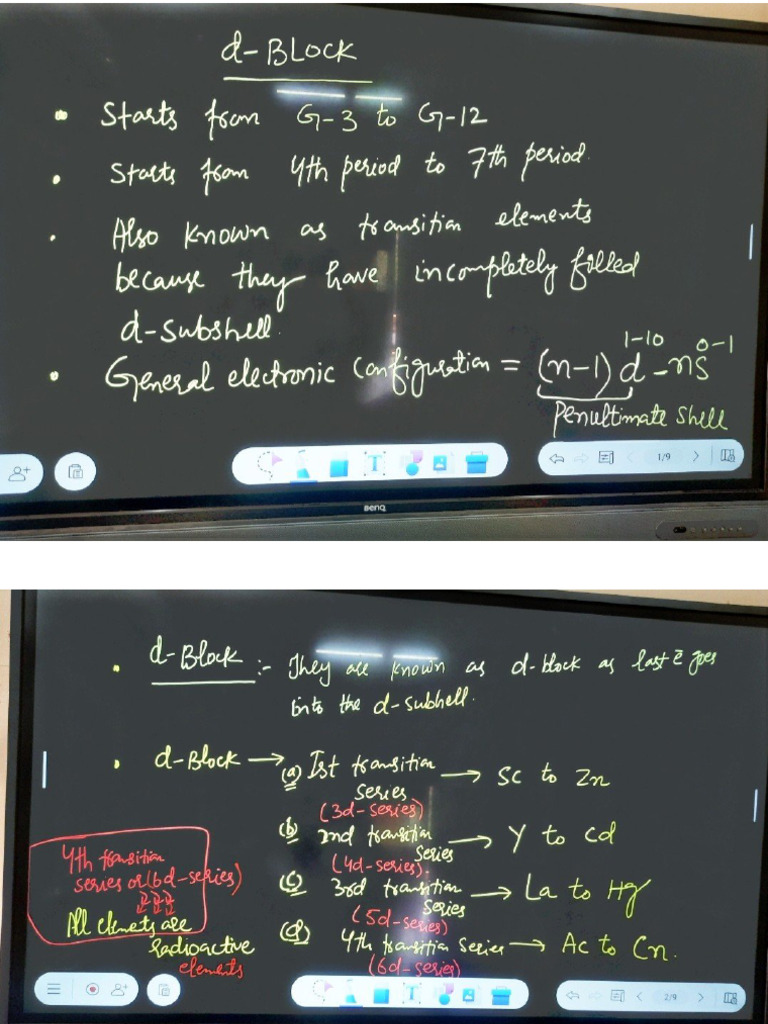 d-BLOCK
• Starts from G-3 to G-12
• Starts from 4th period to 7th period.
• Also known as transition elements
because they have incompletely filled
d-subshell.
• General electronic configuration = (n-1) d¹⁻¹⁰ - ns⁰⁻¹
Penultimate shell
T
1/9
BenQ
• d-Block :- They are known as d-block as last ē goes
into the d-subhell.
• d-Block → (a) Ist transition series → Sc to Zn
(3d-series)
(b) 2nd transition series → Y to Cd
(4d-series).
(c) 3rd transition series → La to Hg
(5d-series)
(d) 4th transition series → Ac to Cn.
(6d-series)
4th transition
series or (6d-series)
↓ ↓ ↓
All elments are
radioactive
elements
T
2/9